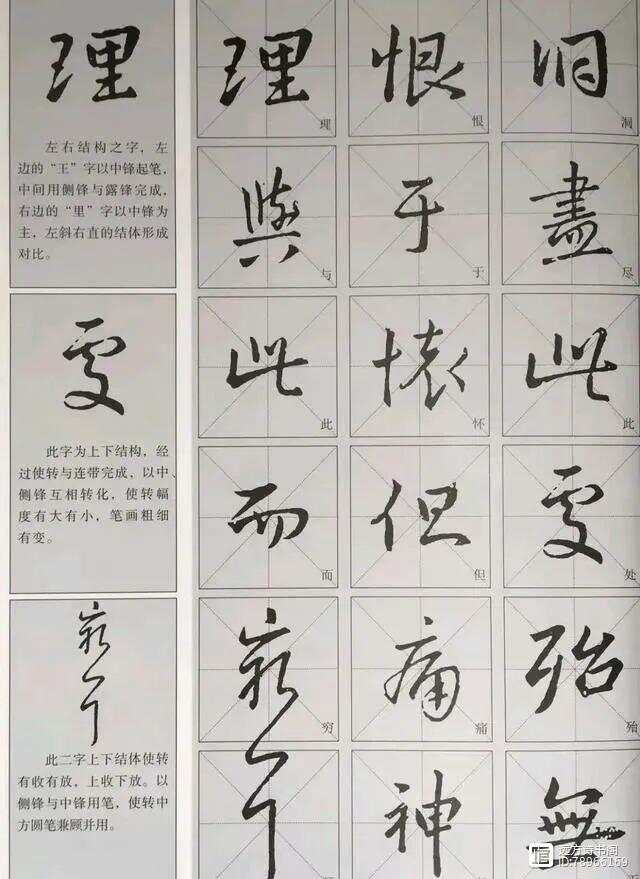 理
左右结构之字,左
边的“王”字以中锋起笔,
中间用侧锋与露锋完成,
右边的“里”字以中锋为
主,左斜右直的结体形成
对比。
處
此字为上下结构,经
过使转与连带完成,以中、
侧锋互相转化,使转幅
度有大有小,笔画粗细
有变。
窮
此二字上下结体使转
有收有放,上收下放。以
侧锋与中锋用笔,使转中
方圆笔兼顾并用。
理 恨 洞
理 恨 洞
與 于 盡
与 于 尽
此 懷 此
此 怀 此
而 但 處
而 但 处
窮 痛 殆
穷 痛 殆
神 無
ID:78966169